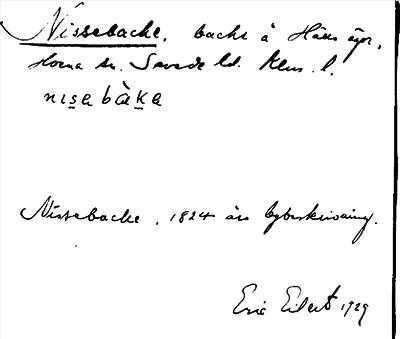 Nissebacke, backe å Häss ägor,
Horna sn. Sevede hd. Klm. l.
nısa bàka
Nissebacke, 1824 års bybeskrivning.
Eric Eilert 1929